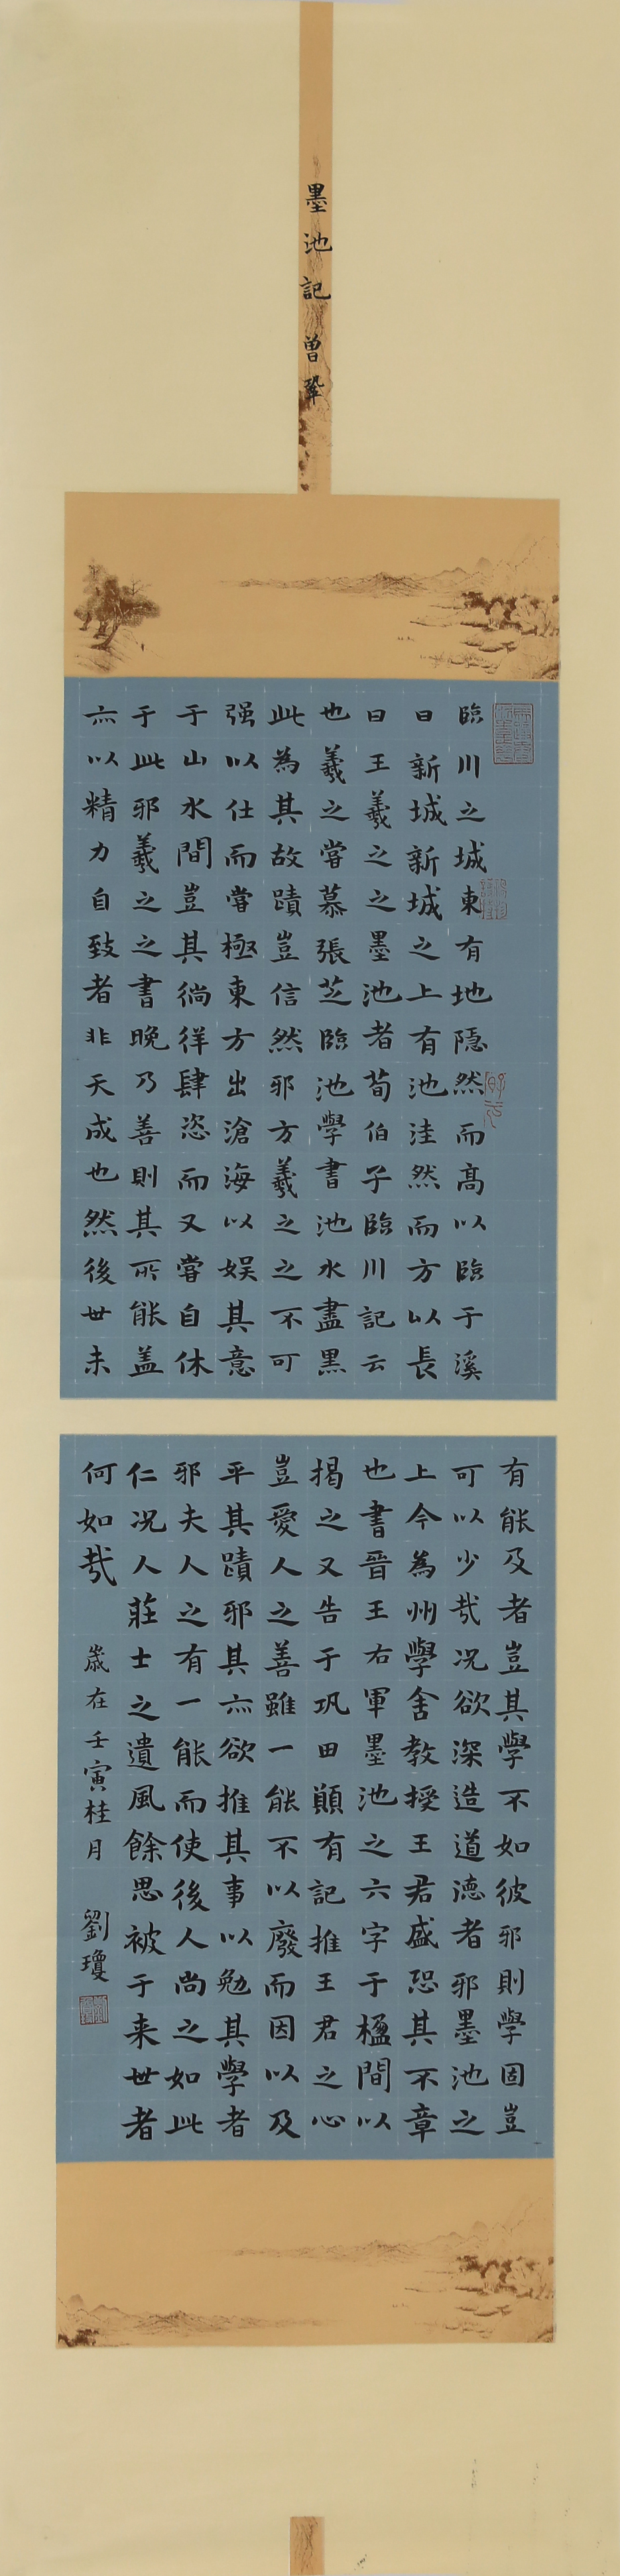 墨池記 曾鞏
臨川之城東有地隱然而髙以臨于溪
曰新城新城之上有池洼然而方以長
曰王羲之之墨池者荀伯子臨川記云
也羲之甞慕張芝臨池學書池水盡黒
此為其故蹟豈信然邪方羲之之不可
强以仕而甞極東方出滄海以娱其意
于山水間豈其徜徉肆恣而又甞自休
于此邪羲之之書晚乃善則其所能盖
亦以精力自致者非天成也然後世未
有能及者豈其學不如彼邪則學固豈
可以少㢤况欲深造道德者邪墨池之
上今為州學舍教授王君盛恐其不章
也書晉王右軍墨池之六字于楹間以
揭之又告于巩曰願有記推王君之心
豈愛人之善雖一能不以廢而因以及
乎其蹟邪其亦欲推其事以勉其學者
邪夫人之有一能而使後人尚之如此
仁况人莊士之遺風餘思被于来世者
何如㢤 歲在壬寅桂月 劉瓊